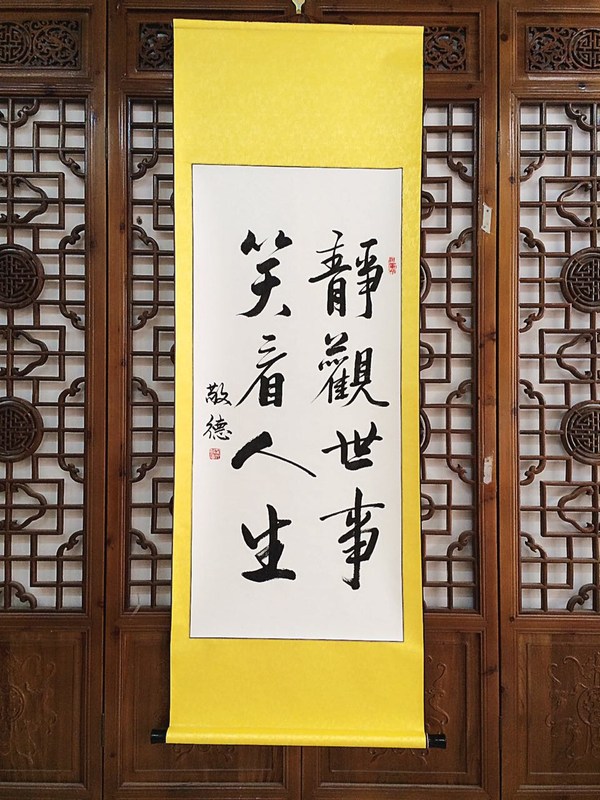 靜觀世事
笑看人生
敬德